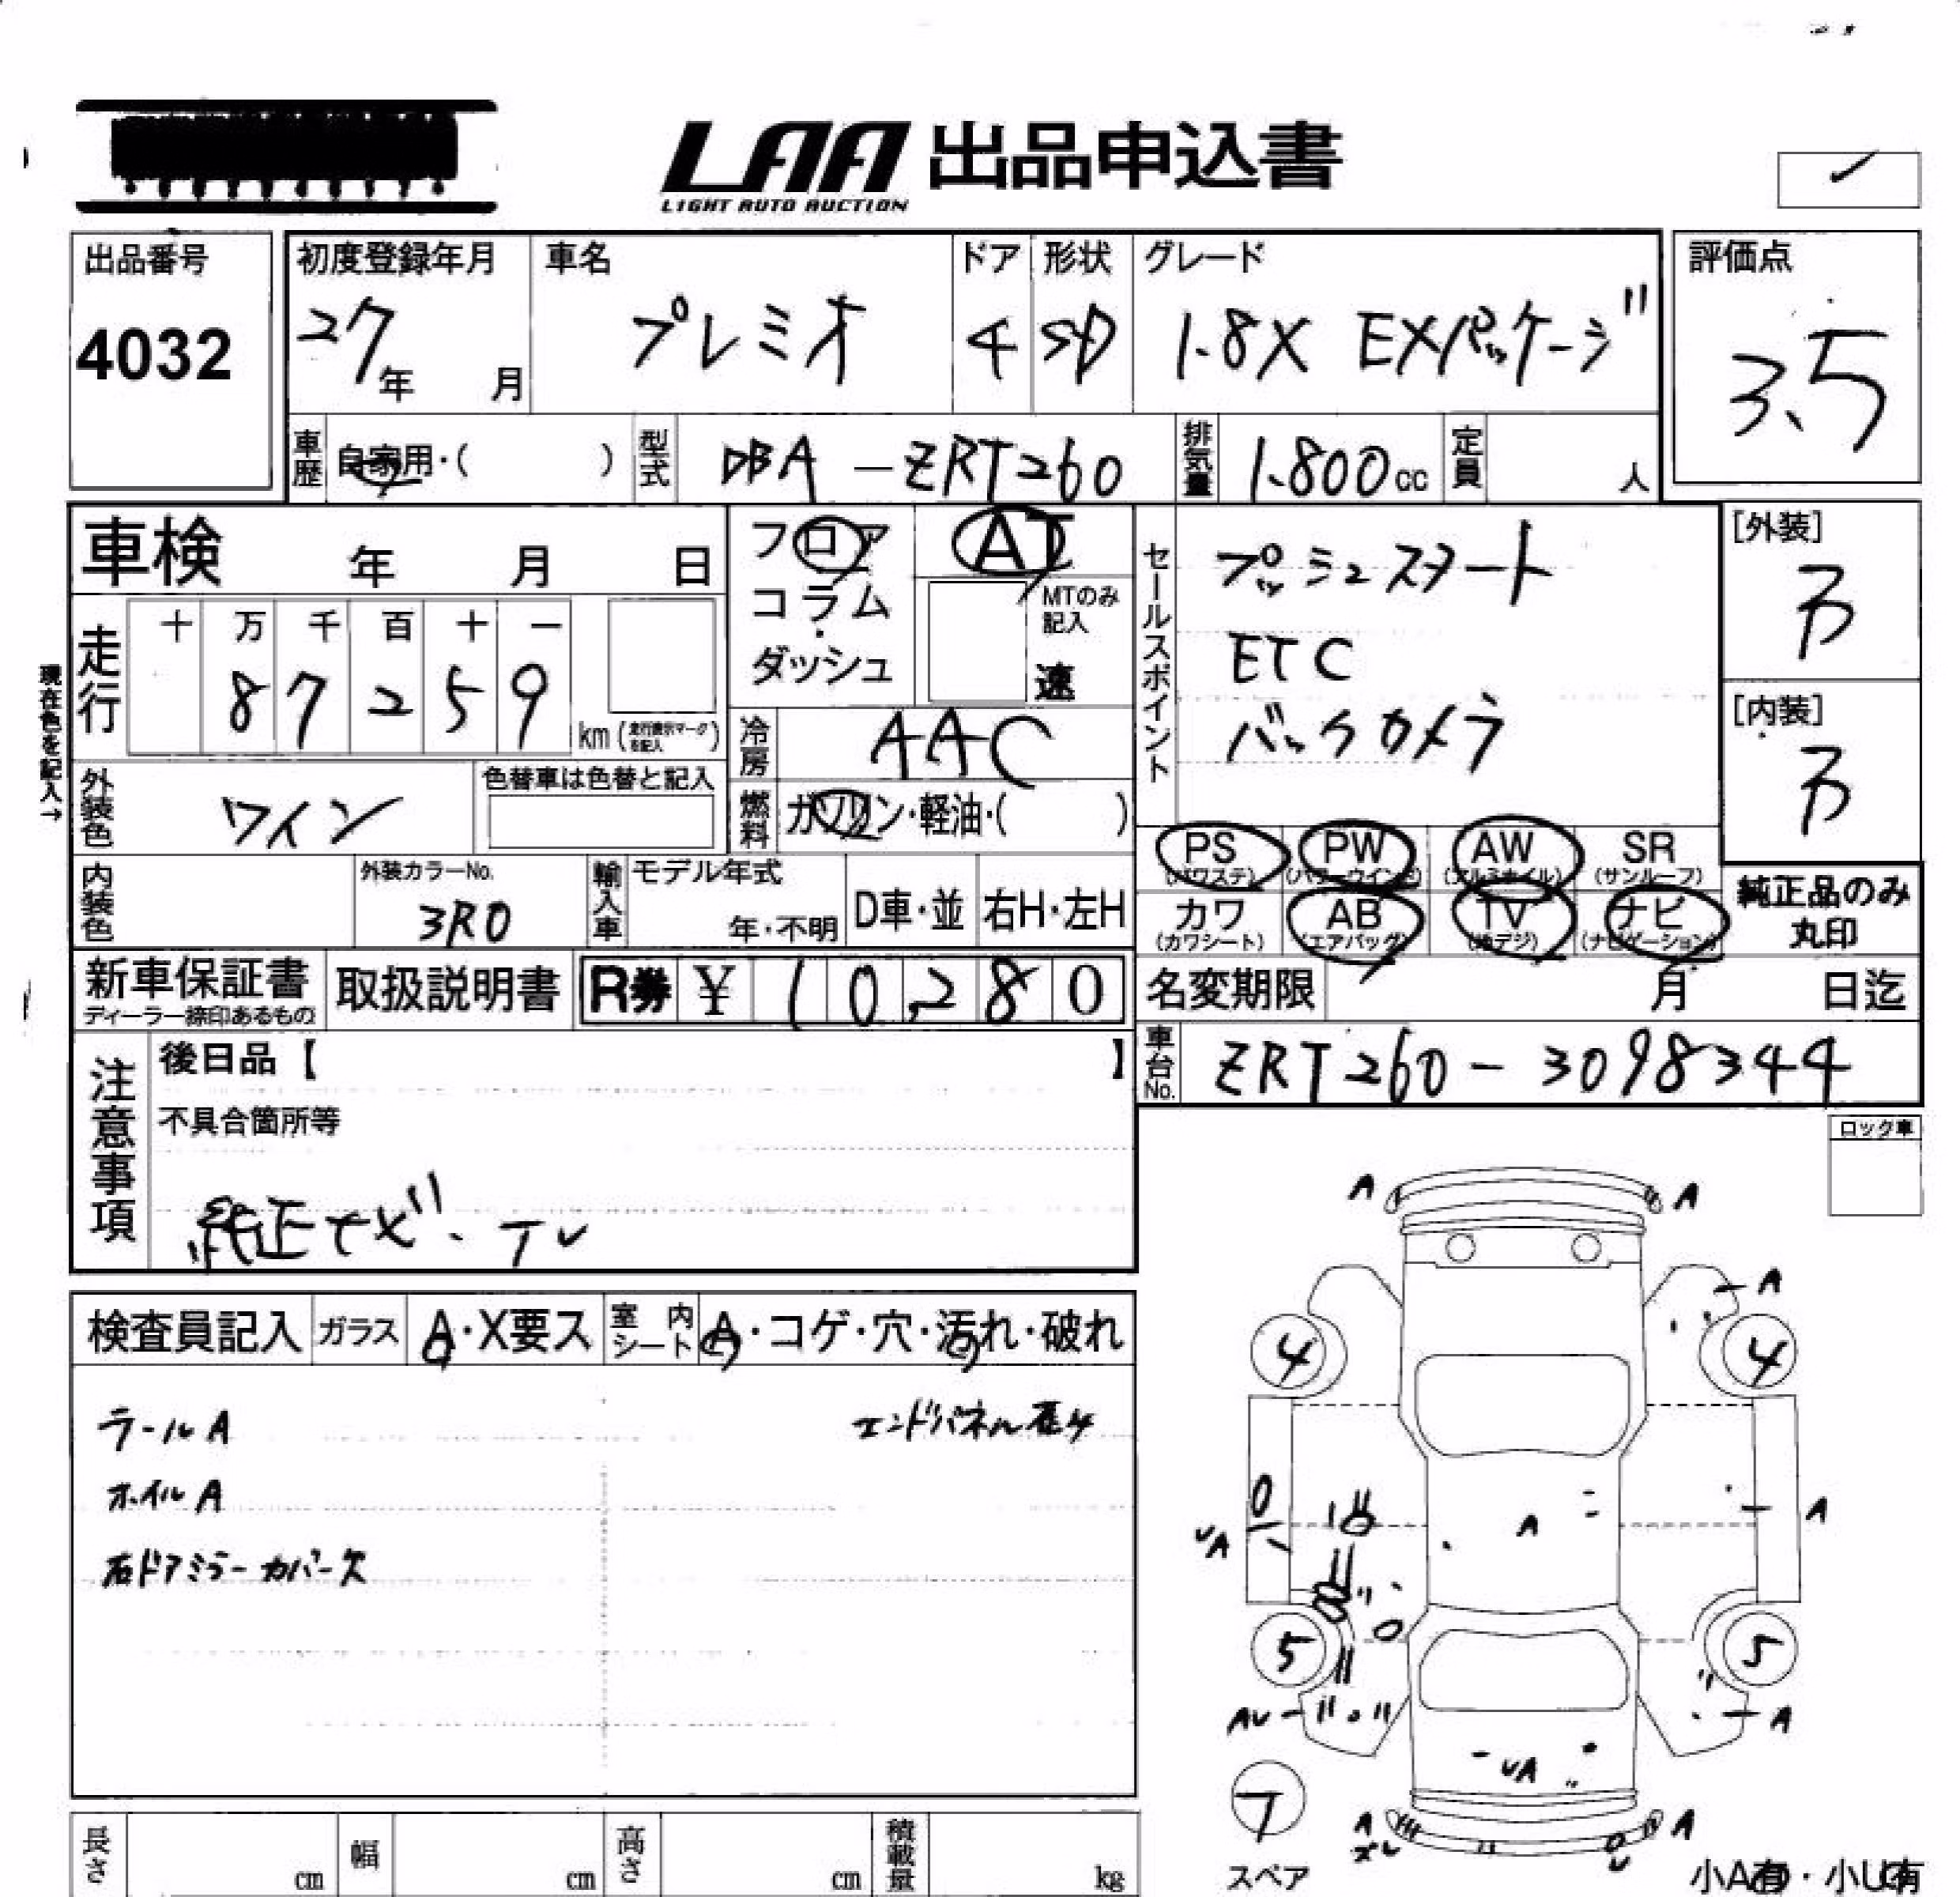 LAA 出品申込書
LIGHT AUTO AUCTION
出品番号
4032
初度登録年月
27年 月
車名
プレミオ
ドア
4
形状
SD
グレード
1.8X EXパッケージ
評価点
3.5
車歴 自家用・( )
型式 DBA-ZRT260
排気量 1.800cc
定員 人
車検 年 月 日
現在色を記入→
走行
十 万 千 百 十 一
8 7 2 5 9
km(走行表示マークを記入)
フロア
コラム
・
ダッシュ
AT
MTのみ記入
速
セールスポイント
プッシュスタート
ETC
バックカメラ
[外装]
[内装]
冷房 AAC
外装色 ワイン
色替車は色替と記入
燃料 ガソリン・軽油・( )
PS (パワステ)
PW (パワーウインド)
AW (アルミホイル)
SR (サンルーフ)
カワ (カワシート)
AB (エアバッグ)
TV (地デジ)
ナビ (ナビゲーション)
純正品のみ
丸印
内装色
外装カラーNo.
3R0
輸入車
モデル年式
年・不明
D車・並
右H・左H
新車保証書
ディーラー締印あるもの
取扱説明書
R券 ¥ 10,280
名変期限 月 日迄
車台No. ZRT260-3098344
注意事項
後日品【 】
不具合箇所等
純正ナビ・TV
ロック車
検査員記入
ガラス A・X要ス
室内シート A・コゲ・穴・汚れ・破れ
ラールA
エンドパネル
ホイルA
右ドアミラーカバー欠
A A
A
4 4
A
A
UA
5 5
AU A
UA
A A
U
スペア
小A有・小U有
長さ cm
幅 cm
高さ cm
積載量 kg